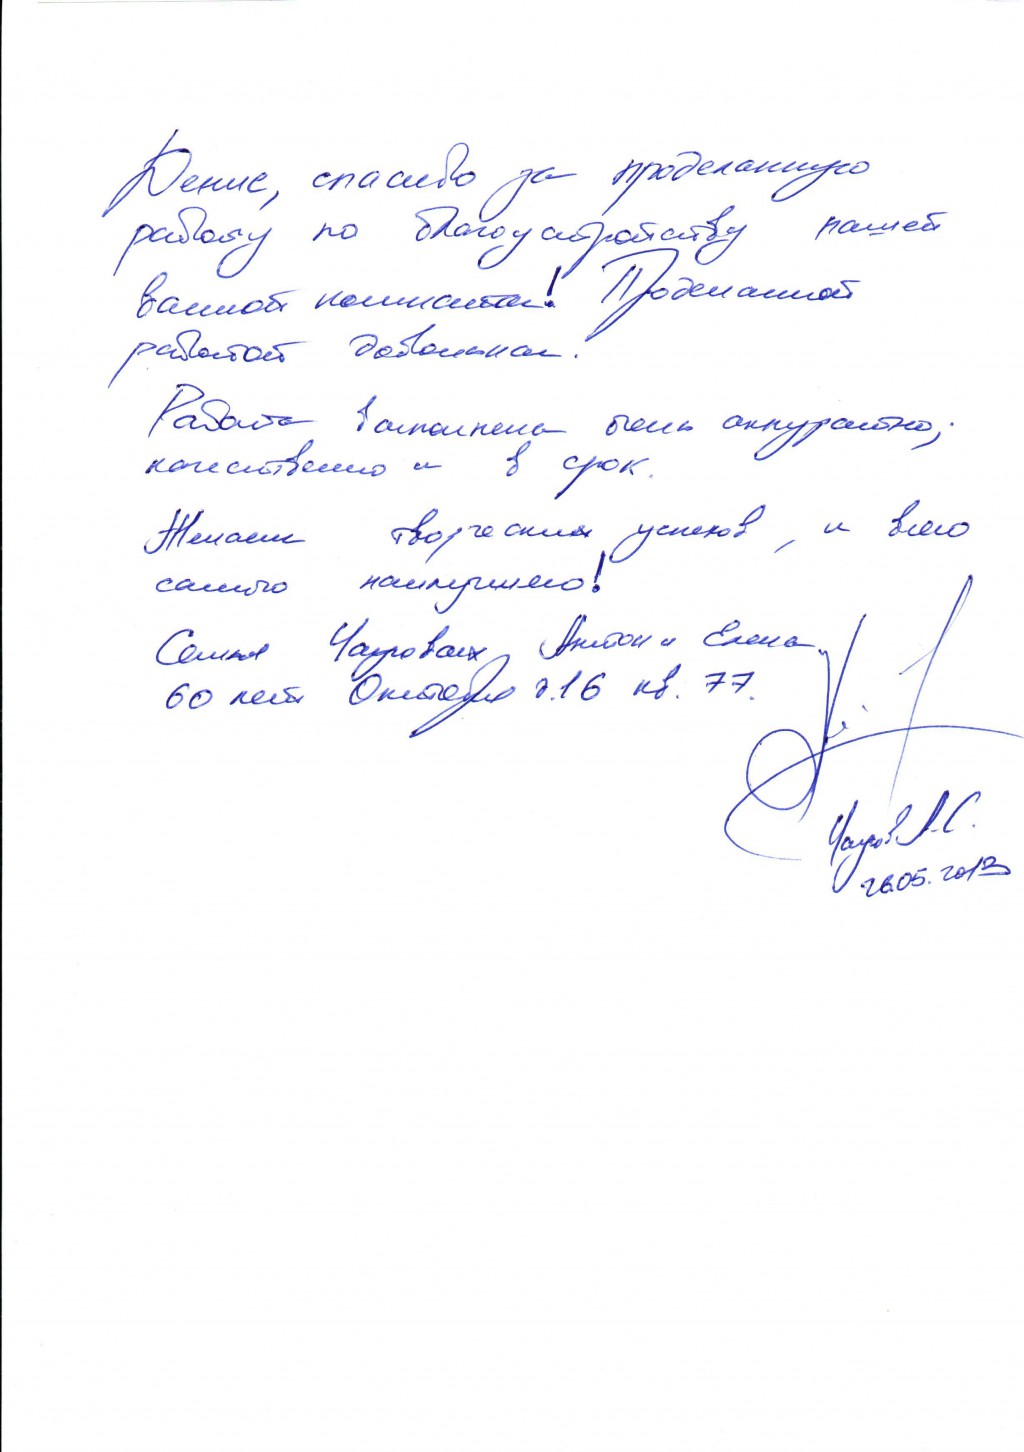 Денис, спасибо за проделанную
работу по благоустройству нашей
ванной комнаты! Проделанной
работой довольны.
Работа выполнена очень аккуратно,
качественно и в срок.
Желаем творческих успехов, и всего
самого наилучшего!
Семья Чауровых Антон и Елена.
60 лет Октября д.16 кв. 77.
Чауров А.С.
26.05.2013